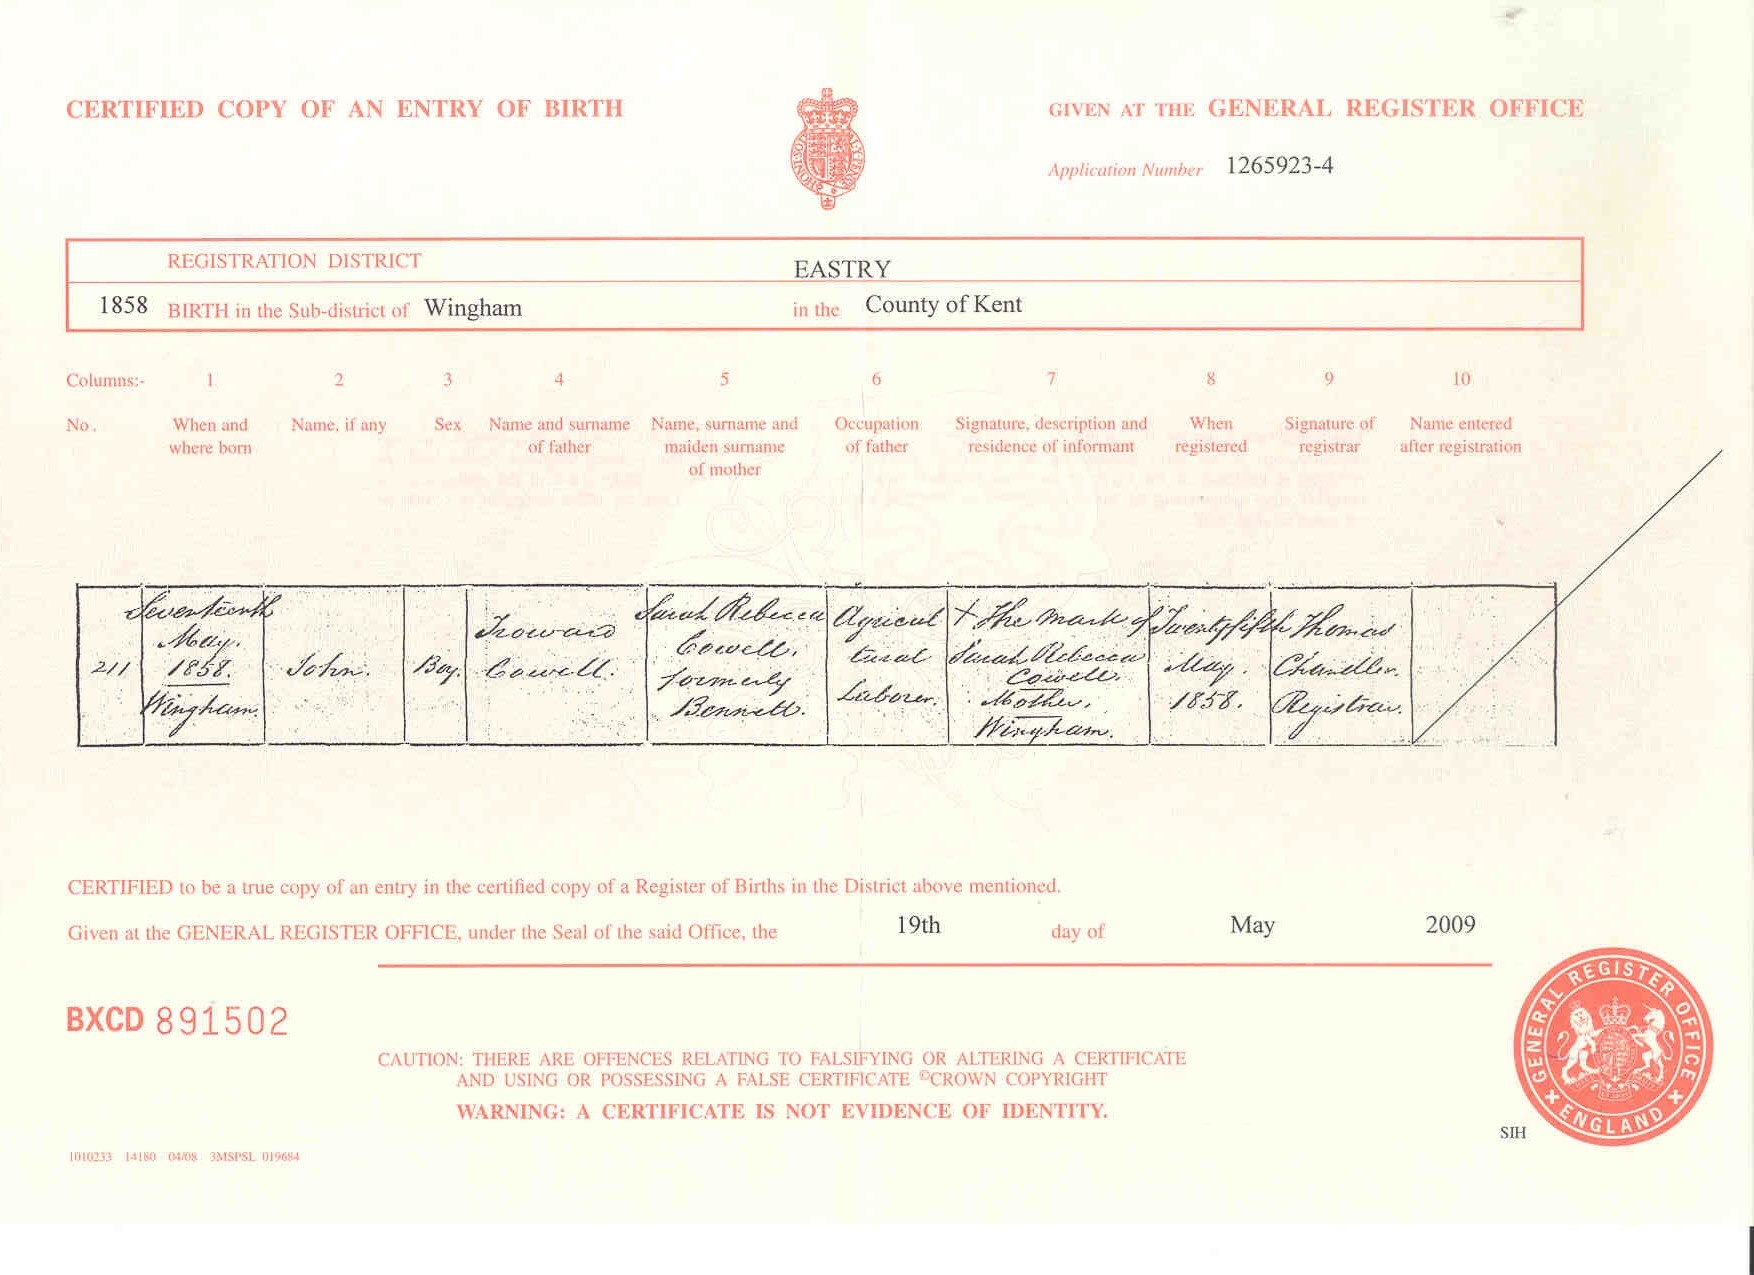 CERTIFIED COPY OF AN ENTRY OF BIRTH
GIVEN AT THE GENERAL REGISTER OFFICE
Application Number 1265923-4
REGISTRATION DISTRICT EASTRY
1858 BIRTH in the Sub-district of Wingham in the County of Kent
Columns:- 1 2 3 4 5 6 7 8 9 10
No. When and where born
Name, if any
Sex
Name and surname of father
Name, surname and maiden surname of mother
Occupation of father
Signature, description and residence of informant
When registered
Signature of registrar
Name entered after registration
211
Seventeenth
May.
1858.
Wingham.
John.
Boy.
Troward
Cowell.
Sarah Rebecca
Cowell,
formerly
Bennett.
Agricul
tural
Laborer.
+ The mark of
Sarah Rebecca
Cowell.
Mother.
Wingham.
Twentyfifth
May.
1858.
Thomas
Chandler.
Registrar.
CERTIFIED to be a true copy of an entry in the certified copy of a Register of Births in the District above mentioned.
Given at the GENERAL REGISTER OFFICE, under the Seal of the said Office, the 19th day of May 2009
BXCD 891502
CAUTION: THERE ARE OFFENCES RELATING TO FALSIFYING OR ALTERING A CERTIFICATE
AND USING OR POSSESSING A FALSE CERTIFICATE ©CROWN COPYRIGHT
WARNING: A CERTIFICATE IS NOT EVIDENCE OF IDENTITY.
GENERAL REGISTER OFFICE
ENGLAND
SIH
1010233 14180 04/08 3MSPSL 019684